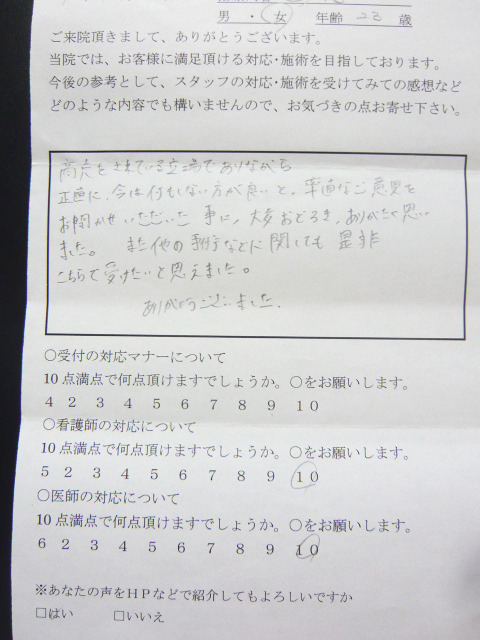 男 ・ 女 年齢 23 歳
ご来院頂きまして、ありがとうございます。
当院では、お客様に満足頂ける対応・施術を目指しております。
今後の参考として、スタッフの対応・施術を受けてみての感想など
どのような内容でも構いませんので、お気づきの点お寄せ下さい。
商売をされている立場でありながら
正直に、今は何もしない方が良いと、率直なご意見を
お聞かせいただいた事に、大変おどろき、ありがたく思い
ました。 また他の手術などに関しても是非
こちらで受けたいと思えました。
ありがとうございました。
○受付の対応マナーについて
10点満点で何点頂けますでしょうか。○をお願いします。
4 2 3 4 5 6 7 8 9 10
○看護師の対応について
10点満点で何点頂けますでしょうか。○をお願いします。
5 2 3 4 5 6 7 8 9 10
○医師の対応について
10点満点で何点頂けますでしょうか。○をお願いします。
6 2 3 4 5 6 7 8 9 10
※あなたの声をHPなどで紹介してもよろしいですか
□はい □いいえ